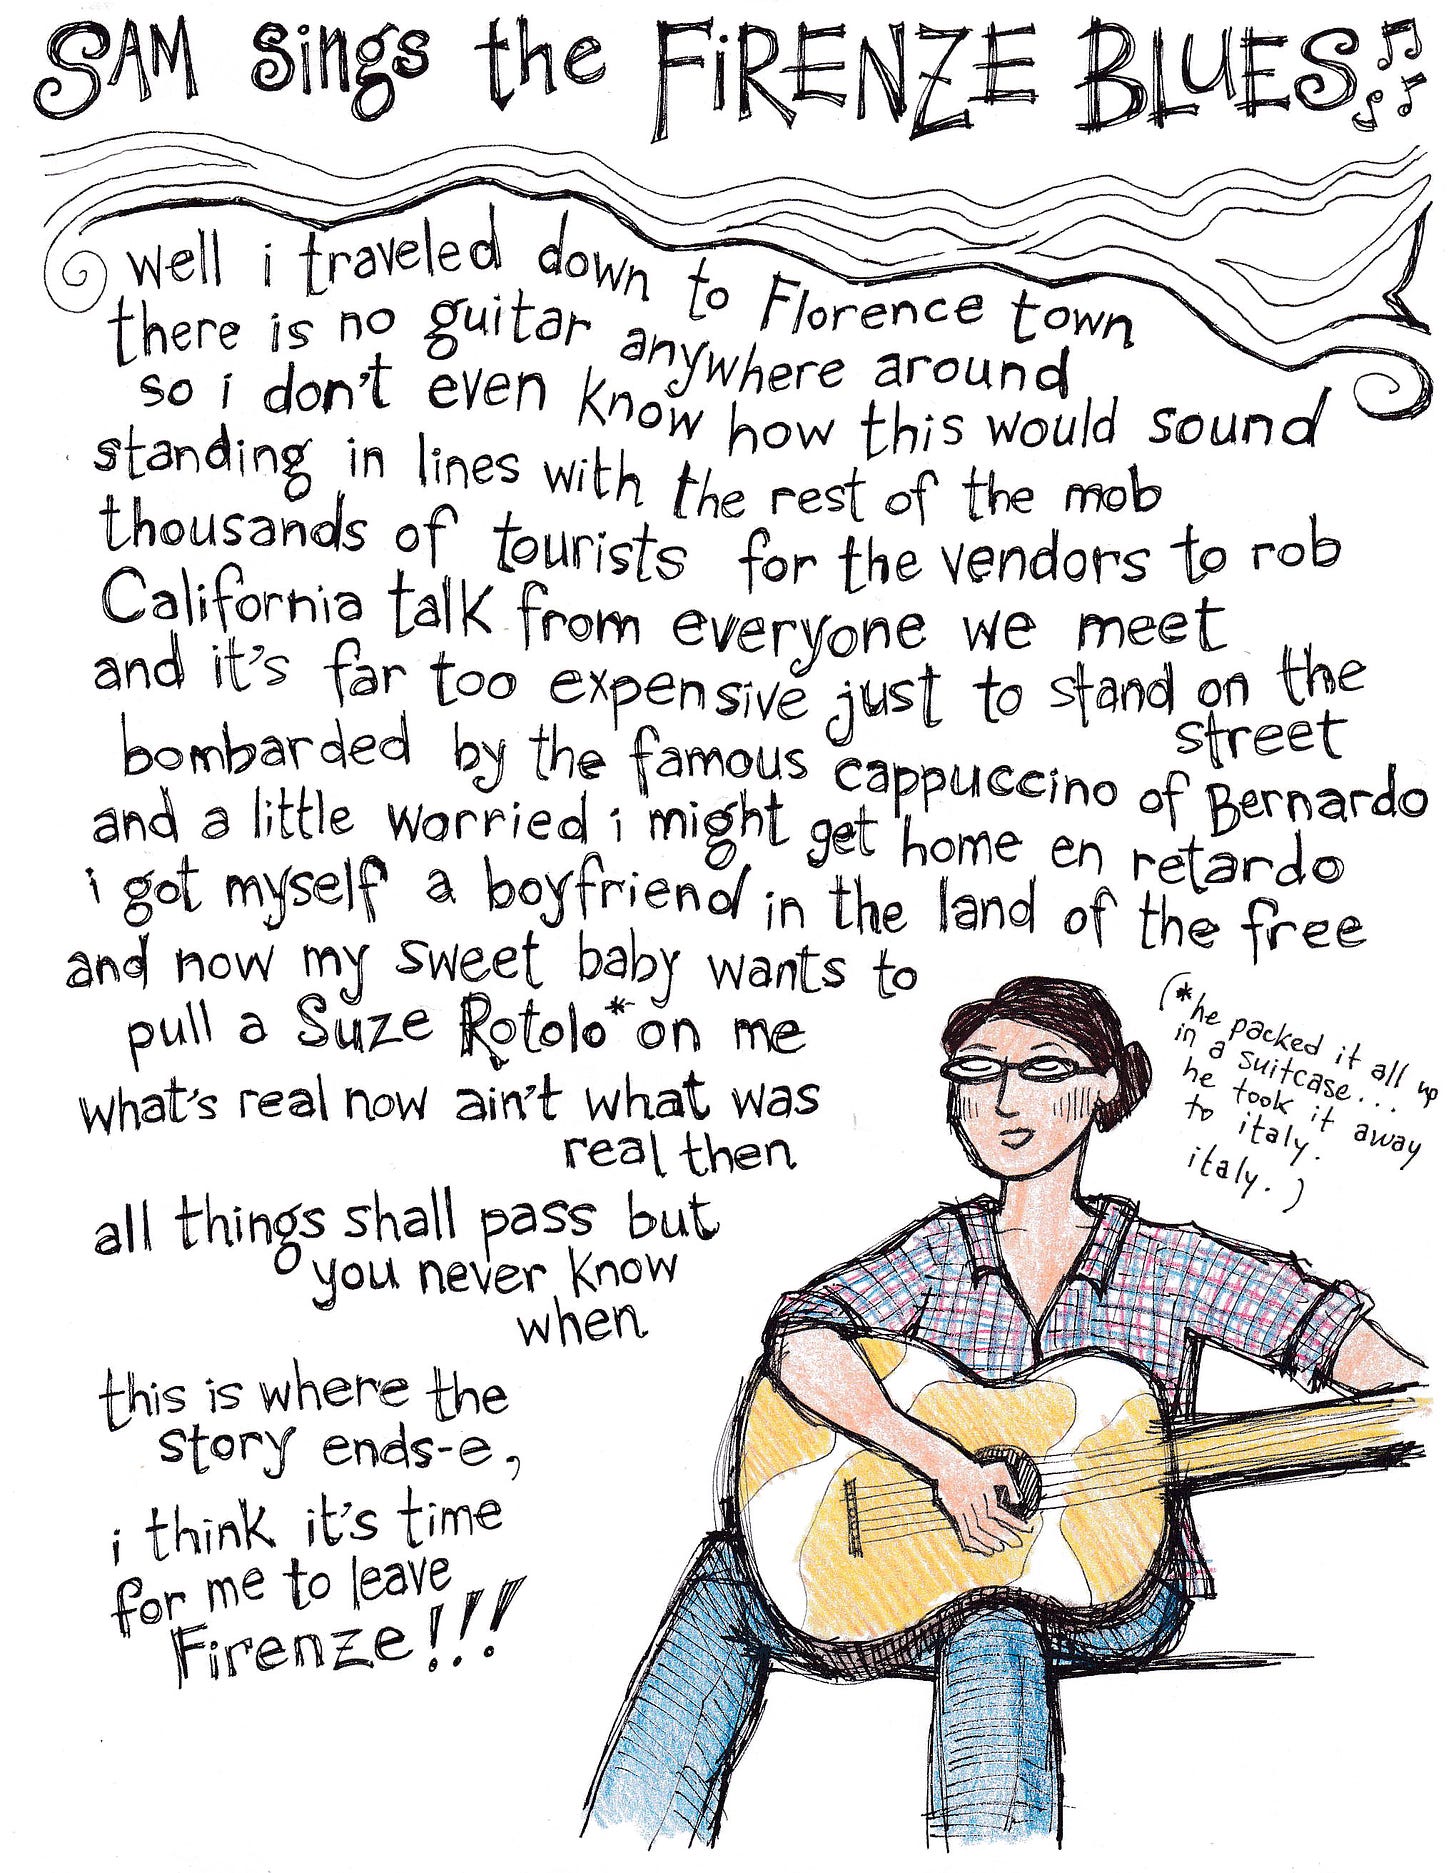 SAM sings the FiRENZE BLUES
well i traveled down to Florence town
there is no guitar anywhere around
so i don't even know how this would sound
standing in lines with the rest of the mob
thousands of tourists for the vendors to rob
California talk from everyone we meet
and it's far too expensive just to stand on the
street
bombarded by the famous cappuccino of Bernardo
and a little worried i might get home en retardo
i got myself a boyfriend in the land of the free
and now my sweet baby wants to
pull a Suze Rotolo* on me
(*he packed it all up
in a suitcase...
he took it away
to italy.
italy.)
what's real now ain't what was
real then
all things shall pass but
you never know
when
this is where the
story ends-e,
i think it's time
for me to leave
Firenze!!!